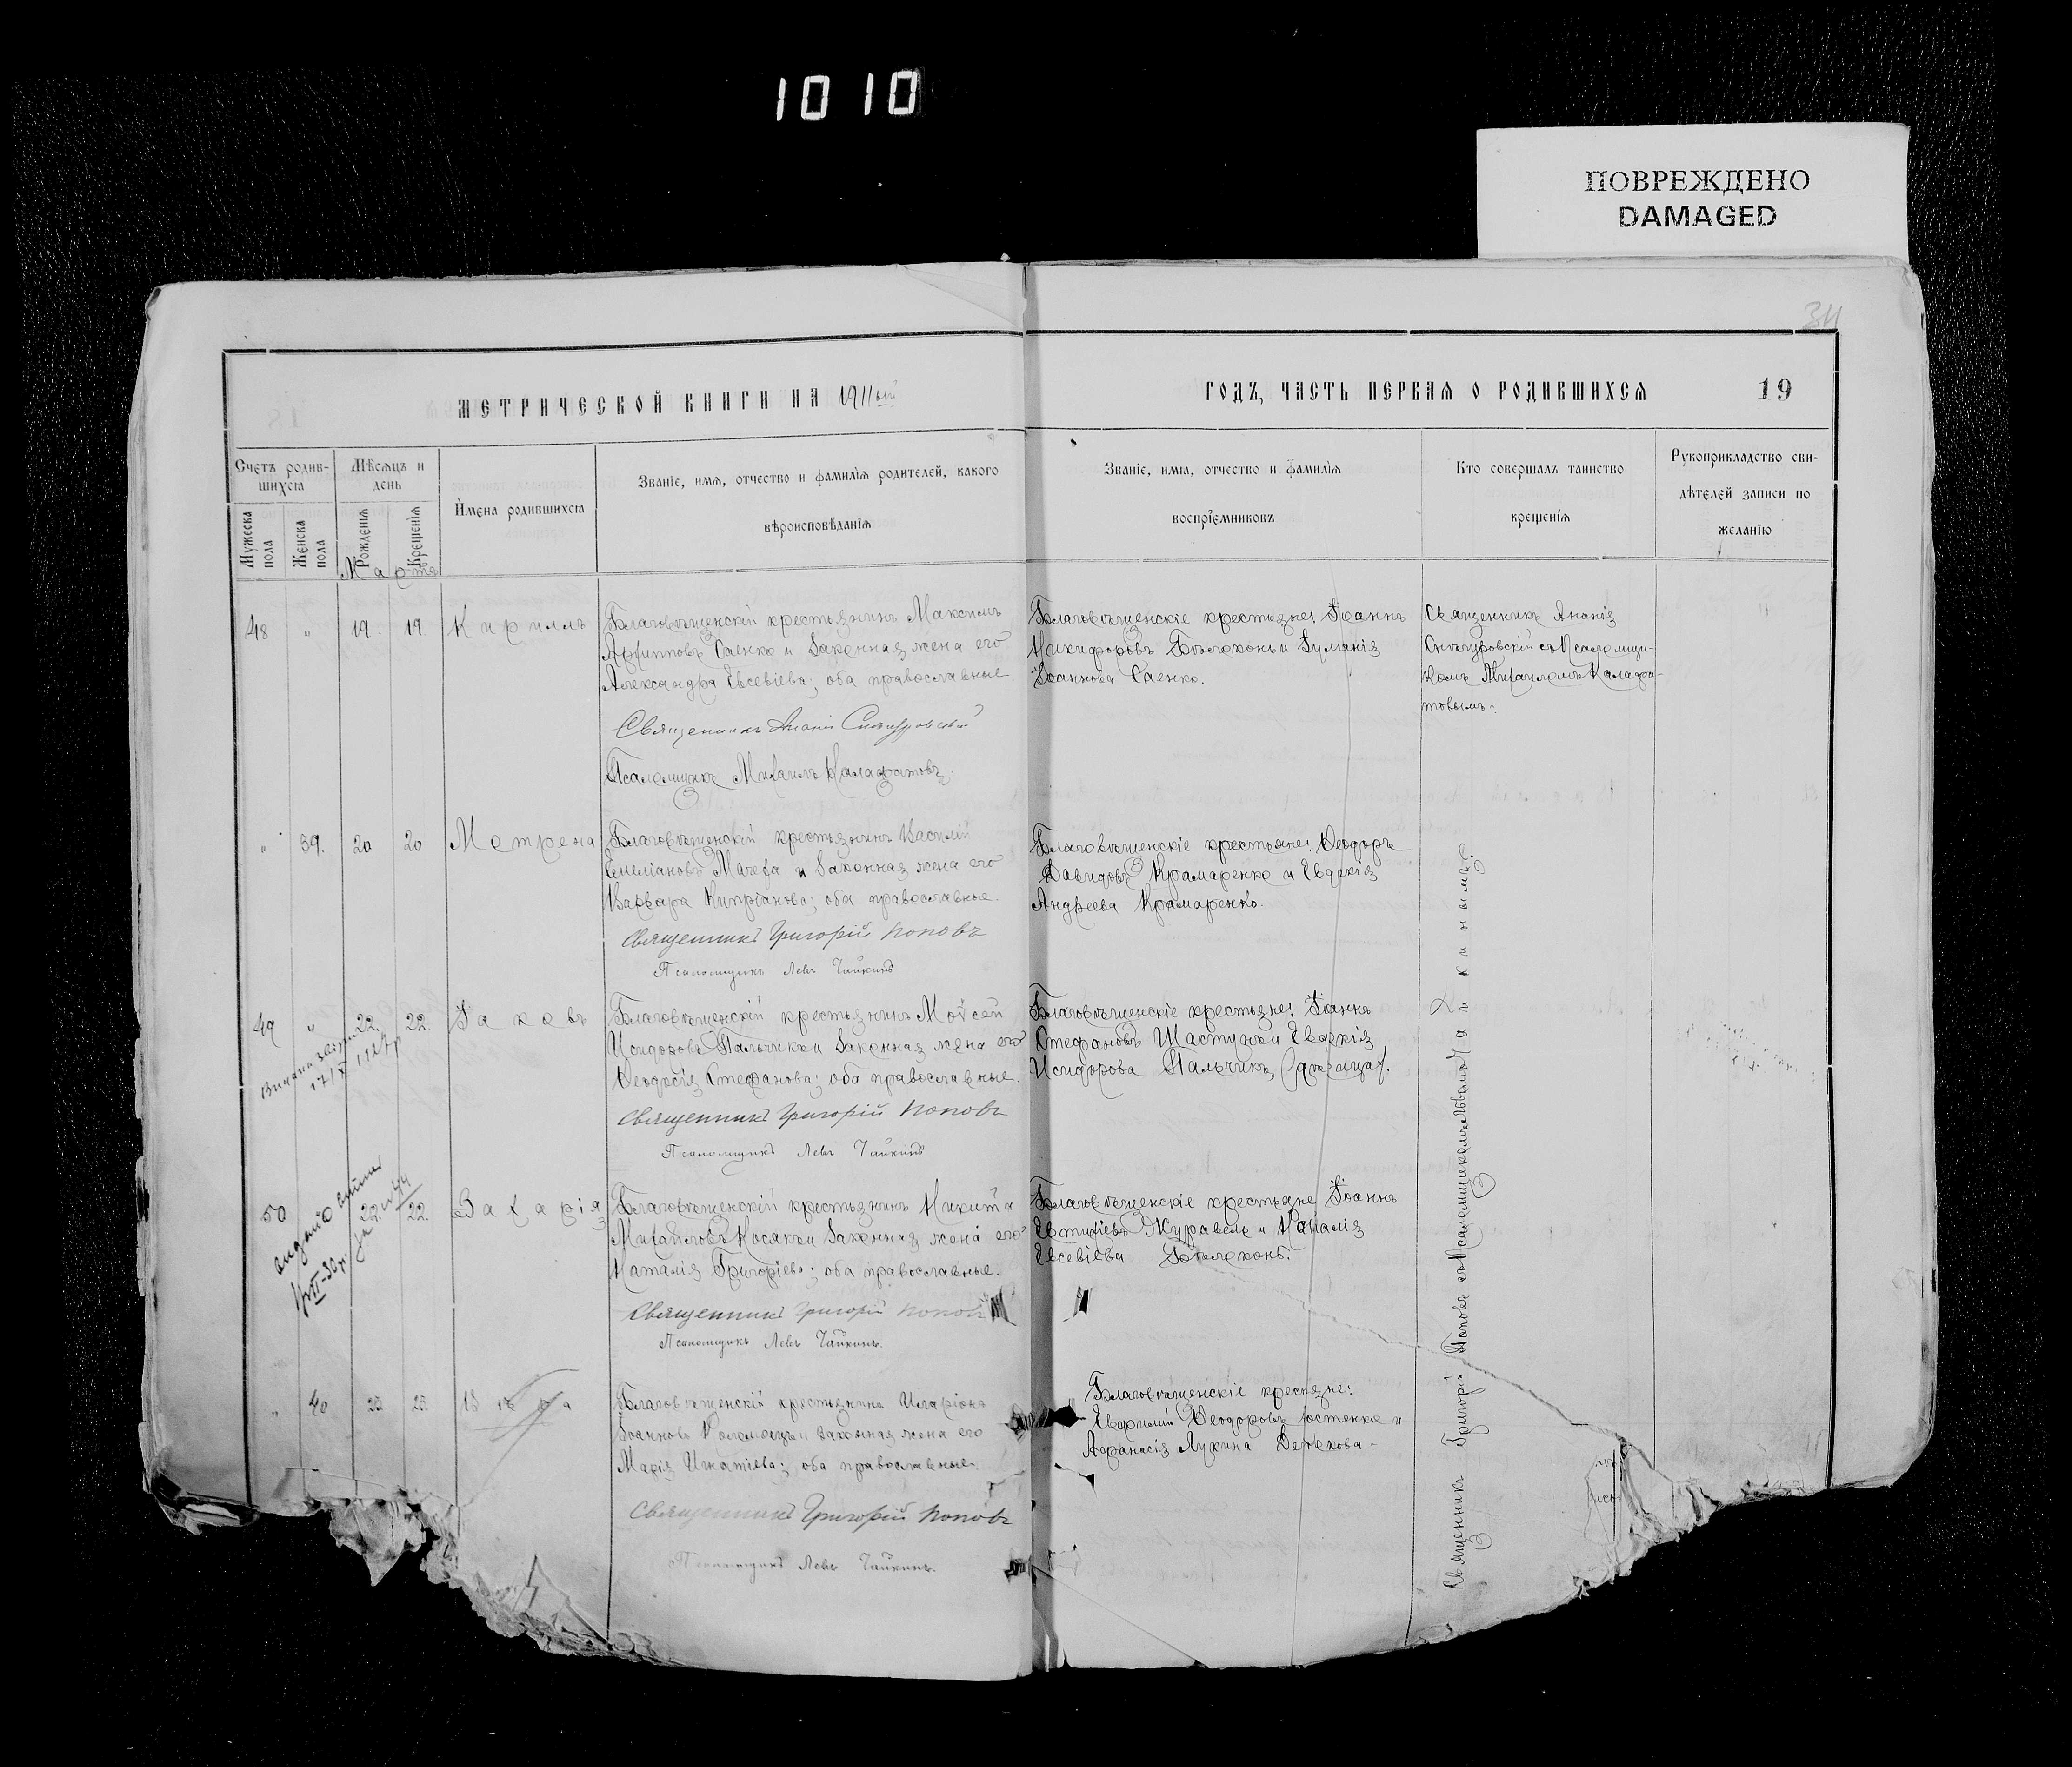 1010
ПОВРЕЖДЕНО
DAMAGED
34
МЕТРИЧЕСКОЙ КНИГИ НА 1911ый
ГОДЪ, ЧАСТЬ ПЕРВАЯ О РОДИВШИХСЯ
19
Счетъ родив-
шихся
Мѣсяцъ и
день
Имена родившихся
Званіе, имя, отчество и фамилія родителей, какого
вѣроисповѣданія
Мужеска
пола
Женска
пола
Рожденія
Крещенія
Званіе, имя, отчество и фамилія
воспріемниковъ
Кто совершалъ таинство
крещенія
Рукоприкладство сви-
дѣтелей записи по
желанію
Марта
48 " 19. 19. Кириллъ
Благовѣщенскій крестьянинъ Максимъ
Саенко и законная жена его
Александра Евсевіева; оба православные
Священникъ Ананій
Псаломщикъ Михаилъ Калафатовъ.
Благовѣщенскіе крестьяне: Іоаннъ
Никифоровъ Бѣлоконь и
Іоаннова Саенко.
Священникъ Ананія
съ Псаломщи-
комъ Михаиломъ Калафа-
товымъ.
" 39. 20 20 Матрена
Благовѣщенскій крестьянинъ Василій
Емиліановъ Магера и законная жена его
Варвара Кипріанова; оба православные.
Священникъ Григорій Поповъ
Псаломщикъ Левъ Чайкинъ
Благовѣщенскіе крестьяне: Ѳеодоръ
Давидовъ Крамаренко и Евдокія
Андреева Крамаренко.
49 " 22. 22. Іаковъ
17/X 1927 р
Благовѣщенскій крестьянинъ Моѵсей
Исидоровъ Пальчикъ и законная жена его
Ѳеодосія Стефанова; оба православные.
Священникъ Григорій Поповъ
Псаломщикъ Левъ Чайкинъ
Благовѣщенскіе крестьяне: Іоаннъ
Стефановъ Шастунъ и Евдокія
Исидорова Пальчикъ,
50 22. 22. Захарія
Благовѣщенскій крестьянинъ Никита
Михайловъ Носякъ и законная жена его
Наталія Григоріева; оба православные.
Священникъ Григорій Поповъ
Псаломщикъ Левъ Чайкинъ.
Благовѣщенскіе крестьяне Іоаннъ
Евтихіевъ Журавель и Наталія
Евсевіева Бѣлоконь.
" 40 25. 25.
Благовѣщенскій крестьянинъ Иларіонъ
Іоанновъ Коломоецъ и законная жена его
Марія Игнатіева; оба православные.
Священникъ Григорій Поповъ
Псаломщикъ Левъ Чайкинъ.
Благовѣщенскіе крестьяне:
Ѳеодоровъ Костенко и
Афанасія Лукина
Священникъ Григорій Поповъ съ Псаломщикомъ Львомъ Чайкинымъ.